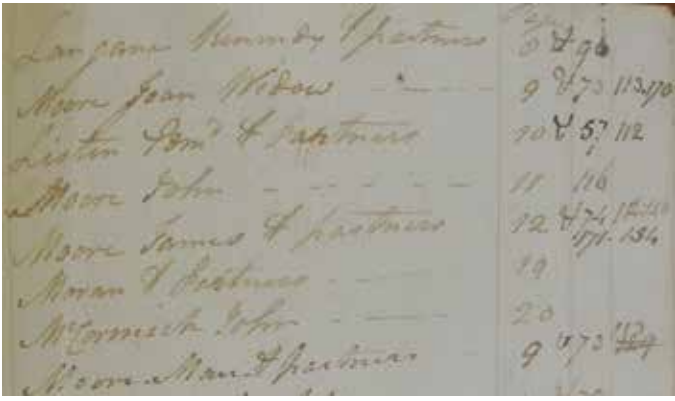 Page
Langane Kennedy & partners 6 & 96
Moore Joan Widow 9 & 73 113.170
Listin & Partners 10 & 57 112
Moore John 11 116
Moore James & partners 12 & 74
171. 134
Moran & Partners 19
McCormick John 20
Moore & partners 9 & 73